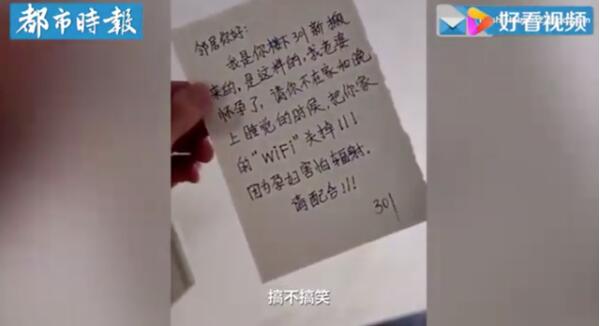 都市時報
好看视频
邻居你好：
我是你楼下301新搬
来的，是这样的，我老婆
怀孕了，请你不在家和晚
上睡觉的时候，把你家
的“WiFi”关掉！！！
因为孕妇害怕辐射。
请配合！！！
301
搞不搞笑